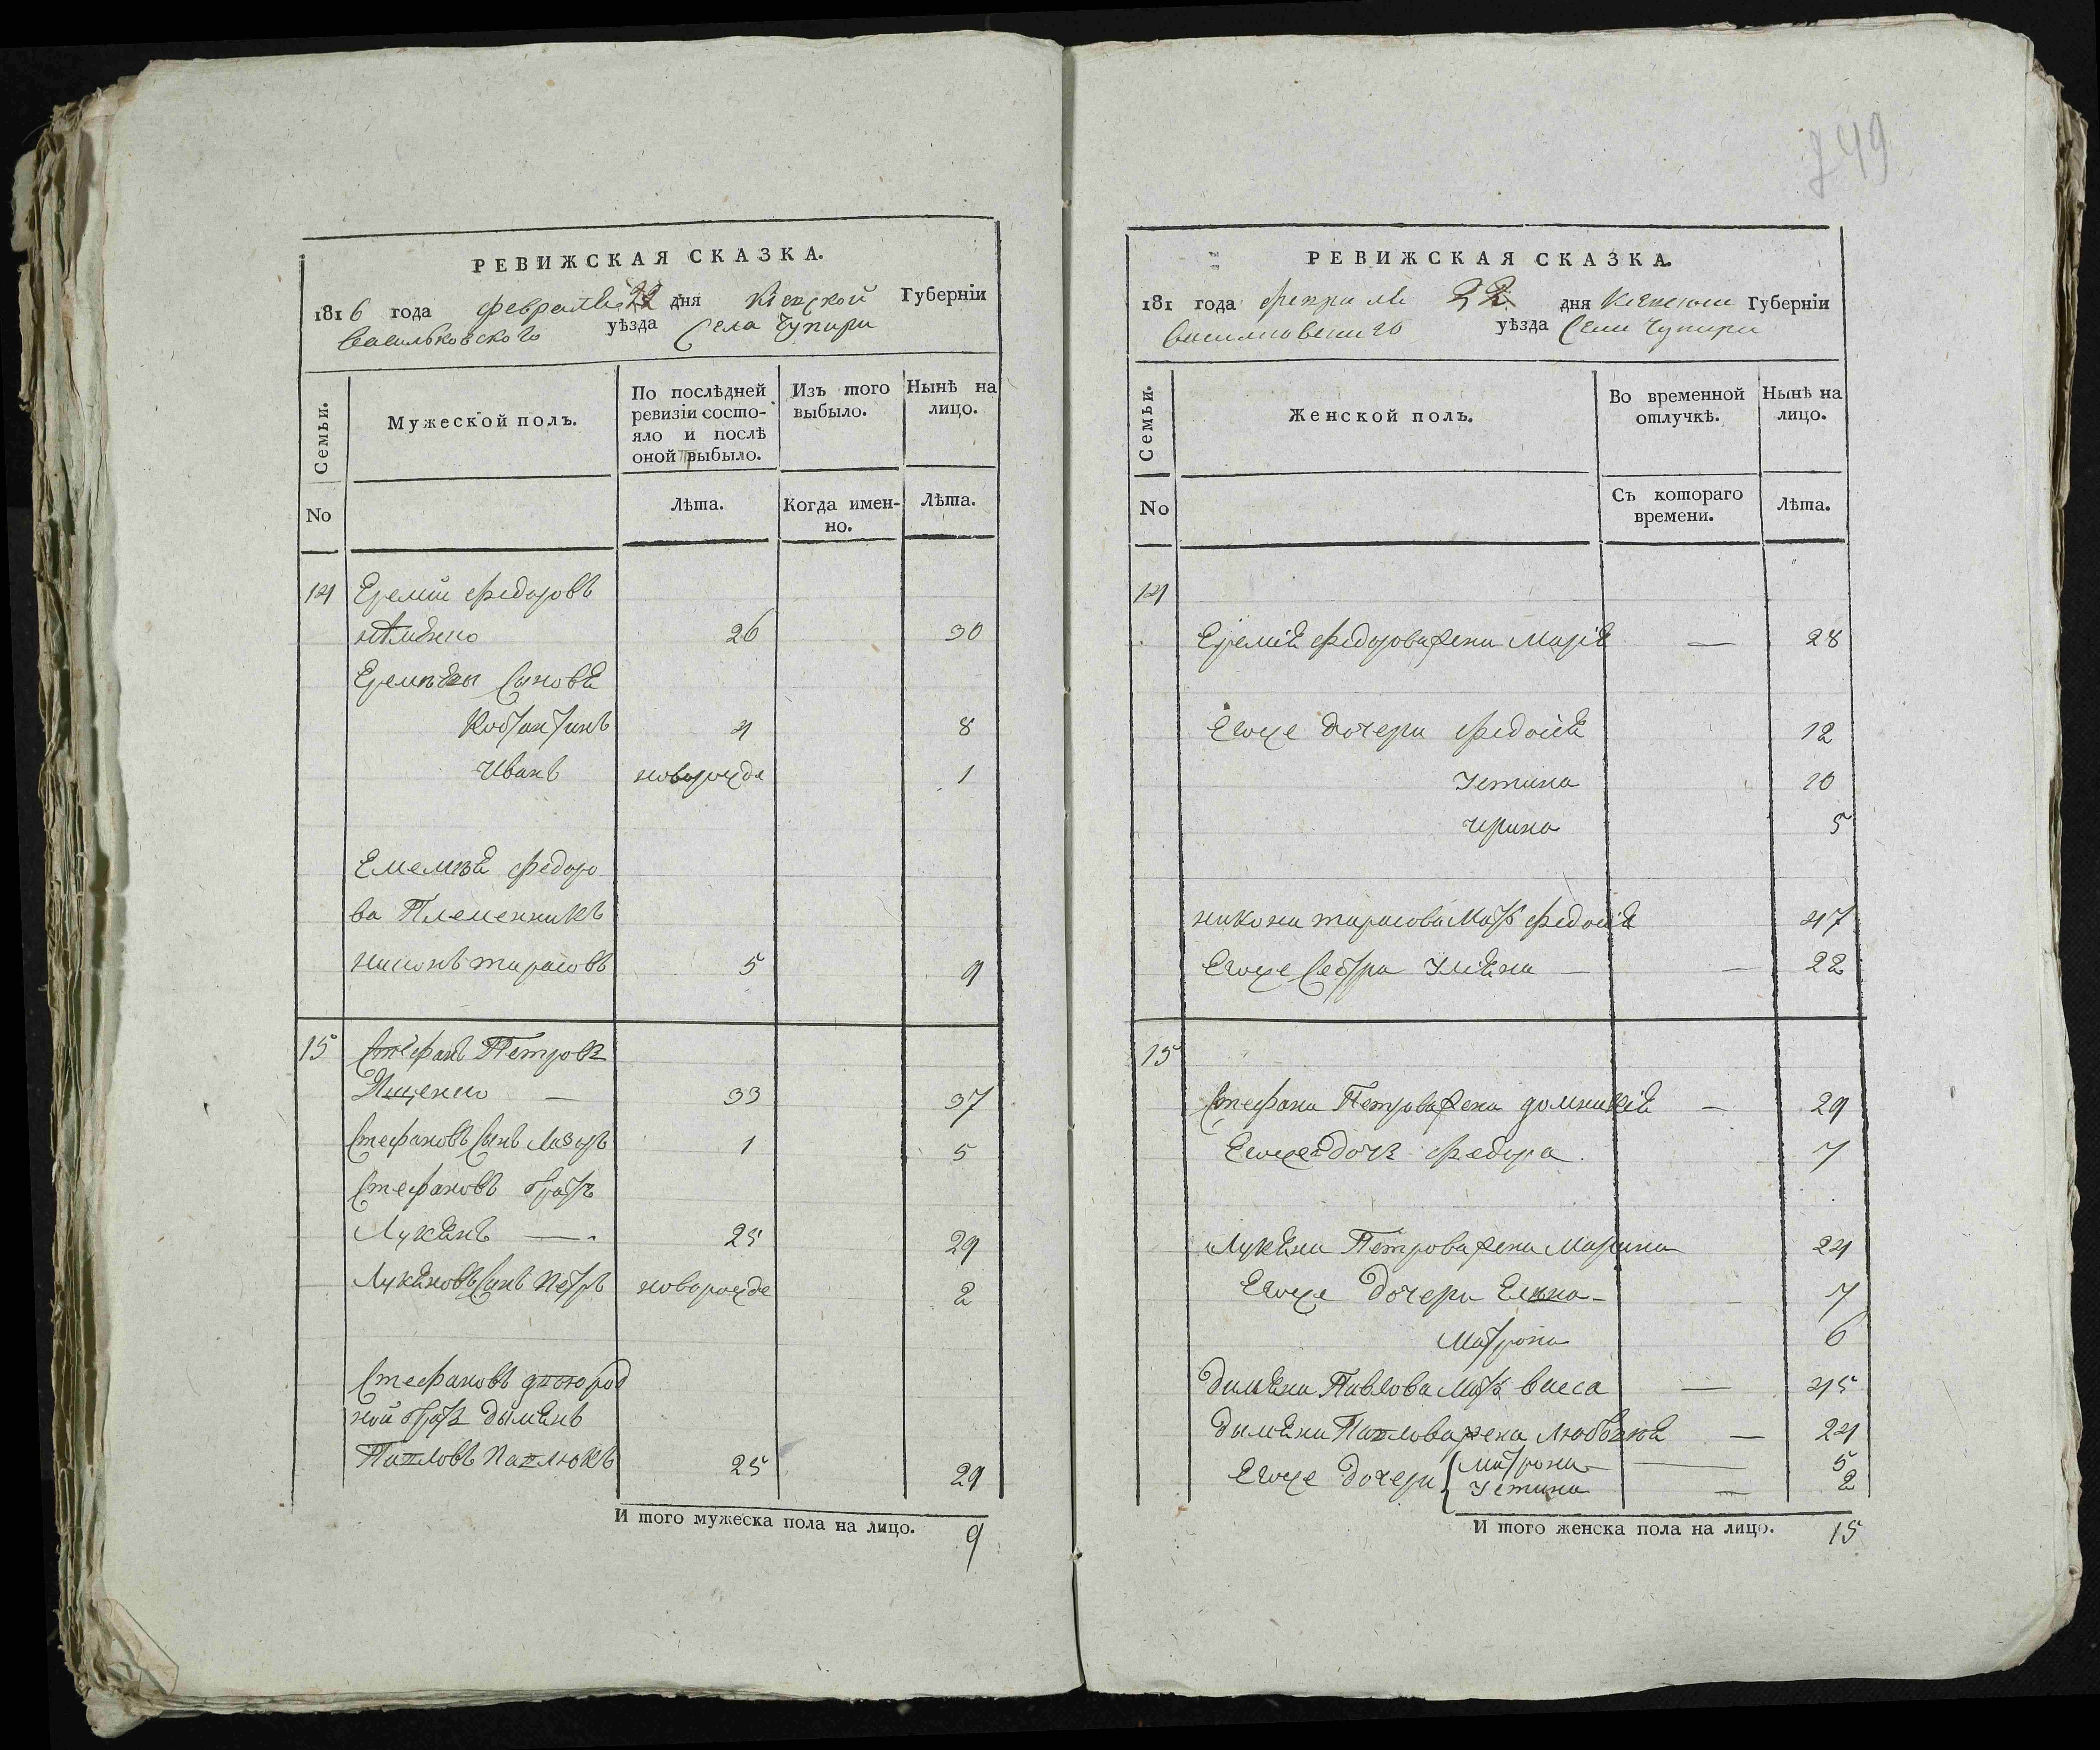 749
РЕВИЖСКАЯ СКАЗКА.
1816 года февраля 22 дня Кіевской Губерніи
Васильковского уѣзда Села Чупири
Семьи.
Мужеской полъ.
По послѣдней ревизіи состо-
яло и послѣ оной выбыло.
Изъ того выбыло.
Нынѣ на лицо.
No
Лѣта.
Когда имен-
но.
Лѣта.
14 Еремѣй Федоровъ
26 30
Еремѣевы Сыновя
Костантинъ 4 8
Иванъ новорожде 1
Федоро
ва Племенникъ
Никонъ Тарасовъ 5 9
15 Стефанъ Петровъ
Ященко — 33 37
Стефановъ Сынъ Лазаръ 1 5
Стефановъ братъ
Лукянъ — 25 29
Лукяновъ Сынъ Петръ новорожде 2
Стефановъ двоюрод
ной братъ Дымянъ
Павловъ Павлюкъ 25 29
И того мужеска пола на лицо. 9
РЕВИЖСКАЯ СКАЗКА.
181 года февраля 22 дня Кіевской Губерніи
Васильковского уѣзда Села Чупири
Семьи.
Женской полъ.
Во временной отлучкѣ.
Нынѣ на лицо.
No
Съ котораго времени.
Лѣта.
14
Еремія Федорова жена Марія — 28
Егоже дочери Федосія 12
Устина 10
Ирина 5
Никона Тарасова Мать Федосія 47
Егоже Сестра Уляна — — 22
15
Стефана Петрова жена Домникія — 29
Егоже дочь Федора 7
Лукяна Петрова жена Марина 24
Егоже дочери Елена — 7
Матрона 6
Дымяна Павлова Мать Васса — 45
Дымяна Павлова жена — 24
Егоже дочери Матрона — 5
Устина — 2
И того женска пола на лицо. 15